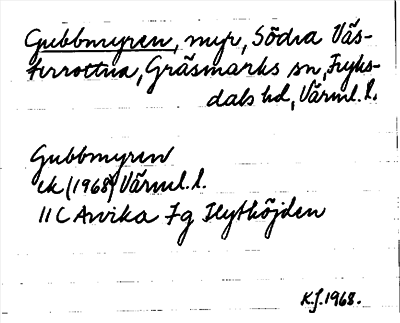 Gubbmyren, myr, Södra Väs-
terrottna, Gräsmarks sn, Fryks-
dals hd, Värml. l.
Gubbmyren
ek (1968) Värml. l.
11 C Arvika 7g Flythöjden
K.J. 1968.